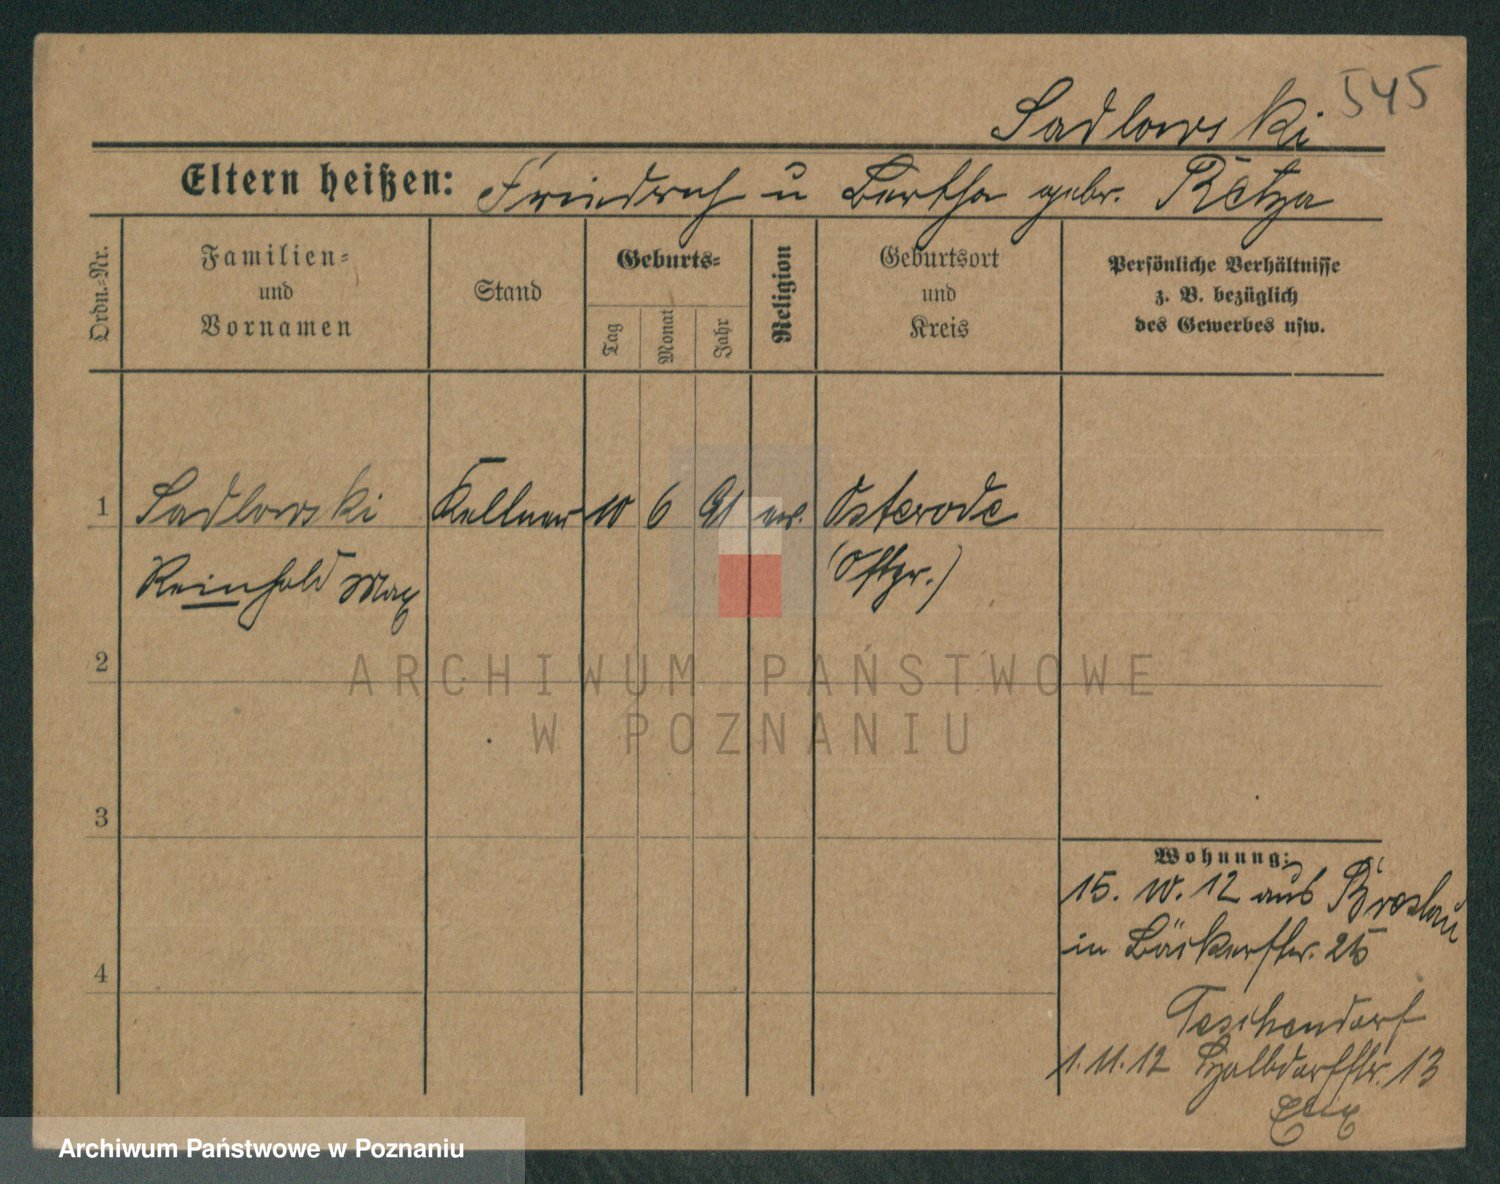 545
Sadlowski
Eltern heißen: Friedrich u Bertha gebr. Retza
Ordn.-Nr.
Familien- und Vornamen
Stand
Geburts-
Tag
Monat
Jahr
Religion
Geburtsort und Kreis
Persönliche Verhältnisse
z. B. bezüglich
des Gewerbes usw.
1 Sadlowski Kellner 10 6 91 ev. Osterode
Reinhold Max (Ostpr.)
2
3
4
Wohnung:
15. 10. 12 aus Breslau
in Bäckerstr. 25
Teschendorf
1. 11. 12 Halbdorfstr. 13
ARCHIWUM PAŃSTWOWE
W POZNANIU
Archiwum Państwowe w Poznaniu